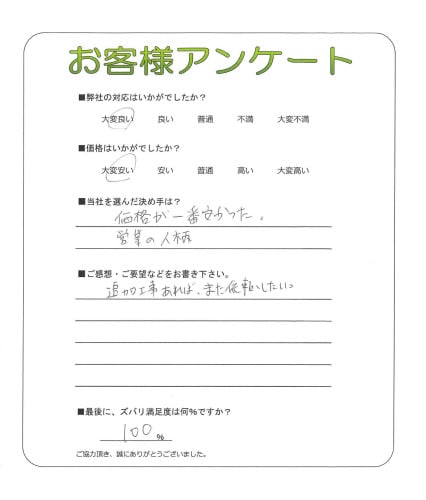 お客様アンケート
■弊社の対応はいかがでしたか？
大変良い 良い 普通 不満 大変不満
■価格はいかがでしたか？
大変安い 安い 普通 高い 大変高い
■当社を選んだ決め手は？
価格が一番安かった。
営業の人柄
■ご感想・ご要望などをお書き下さい。
追加工事あれば、また依頼したい。
■最後に、ズバリ満足度は何%ですか？
100 %
ご協力頂き、誠にありがとうございました。